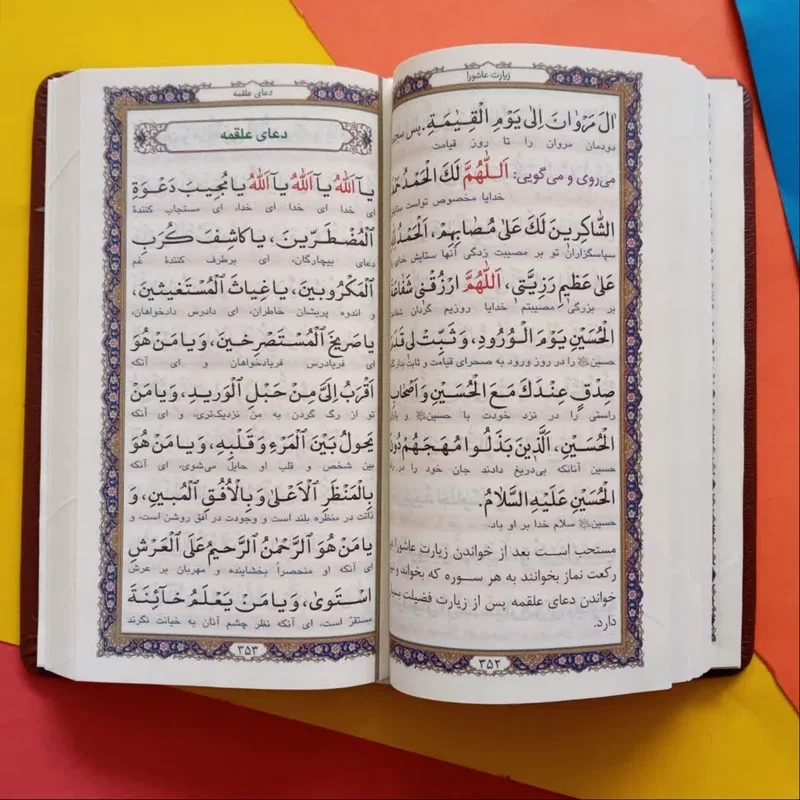 زیارت عاشورا
اٰلَ مَرْوٰانَ اِلىٰ يَوْمِ الْقِيٰمَةِ. پس
دودمان مروان را تا روز قیامت
می‌روی و می‌گویی: اَللّٰهُمَّ لَكَ الْحَمْدُ
خدایا مخصوص تواست
الشّٰاكِرينَ لَكَ عَلىٰ مُصٰابِهِمْ، اَلْحَمْدُ
سپاسگزاران تو بر مصیبت زدگی آنها ستایش
عَلىٰ عَظيمِ رَزِيَّتى، اَللّٰهُمَّ ارْزُقْنى
بر بزرگی مصیبتم خدایا روزیم گردان
الْحُسَيْنِ يَوْمَ الْوُرُودِ، وَ ثَبِّتْ لى قَدَمَ
حسین را در روز ورود به صحرای قیامت و ثابت
صِدْقٍ عِنْدَكَ مَعَ الْحُسَيْنِ وَ اَصْحٰابِ
راستی را در نزد خودت با حسین و
الْحُسَيْنِ، اَلَّذينَ بَذَلُوا مُهَجَهُمْ دُونَ
حسین آنانکه بی‌دریغ دادند جان خود را در
الْحُسَيْنِ عَلَيْهِ السَّلٰامُ.
حسین سلام خدا بر او باد.
مستحب است بعد از خواندن زیارت عاشورا
رکعت نماز بخوانند به هر سوره که بخواند و
خواندن دعای علقمه پس از زیارت فضیلت
دارد.
۳۵۲
دعای علقمه
دعای علقمه
يٰآ اَللّٰهُ يٰآ اَللّٰهُ يٰآ اَللّٰهُ يٰا مُجيبَ دَعْوَةِ
ای خدا ای خدا ای خدا، ای مستجاب کنندهٔ
الْمُضْطَرّينَ، يٰا كٰاشِفَ كُرَبِ
دعای بیچارگان، ای برطرف کنندهٔ غم
الْمَكْرُوبينَ، يٰا غِيٰاثَ الْمُسْتَغيثينَ،
و اندوه پریشان خاطران، ای دادرس دادخواهان،
يٰا صَريخَ الْمُسْتَصْرِخينَ، وَ يٰا مَنْ هُوَ
ای فریادرس فریادخواهان و ای آنکه
اَقْرَبُ اِلَىَّ مِنْ حَبْلِ الْوَريدِ، وَ يٰا مَنْ
تو از رگ گردن به من نزدیک‌تری، و ای آنکه
يَحُولُ بَيْنَ الْمَرْءِ وَ قَلْبِهِ، وَ يٰا مَنْ هُوَ
بین شخص و قلب او حایل می‌شوی، ای آنکه
بِالْمَنْظَرِ الْاَعْلىٰ وَ بِالْاُفُقِ الْمُبينِ، وَ
ذاتت در منظره بلند است و وجودت در افق روشن است، و
يٰا مَنْ هُوَ الرَّحْمٰنُ الرَّحيمُ عَلَى الْعَرْشِ
ای آنکه او منحصراً بخشاینده و مهربان بر عرش
اسْتَوىٰ، وَ يٰا مَنْ يَعْلَمُ خٰآئِنَةَ
مستقرّ است، ای آنکه نظر چشم آنان به خیانت نگرند
۳۵۳